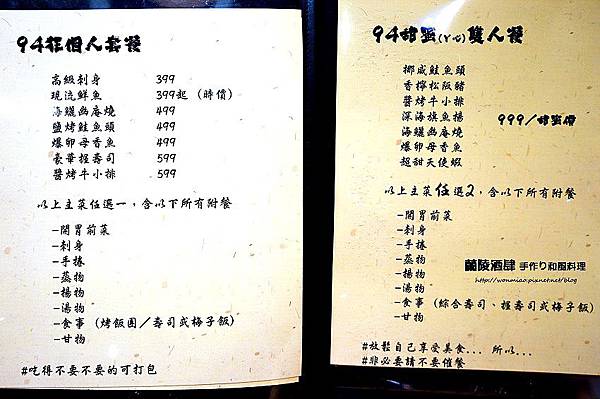 94狂個人套餐
高級刺身 399
現流鮮魚 399起 (時價)
海鱺幽庵燒 499
鹽烤鮭魚頭 499
爆卵母香魚 499
豪華握壽司 599
醬烤牛小排 599
以上主菜任選一，含以下所有附餐
-開胃前菜
-刺身
-手捲
-蒸物
-揚物
-湯物
-食事 (烤飯團／壽司或梅子飯)
-甘物
#吃得不要不要的可打包
94甜蜜(ㄚㄘ)雙人餐
挪威鮭魚頭
香檸松阪豬
醬烤牛小排
深海旗魚揚
海鱺幽庵燒
爆卵母香魚
超甜天使蝦
999／甜蜜價
以上主菜任選2，含以下所有附餐
-開胃前菜
-刺身
-手捲
-蒸物
-揚物
-湯物
-食事 (綜合壽司、握壽司或梅子飯)
-甘物
蘭陵酒肆 手作り和風料理
http://wonmiaa.pixnet.net/blog
#放鬆自己享受美食... 所以...
#非必要請不要催餐